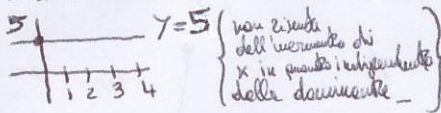 5 y = 5
non risente
dell'incremento di
x in quanto indipendente
dalla dominante
1 2 3 4